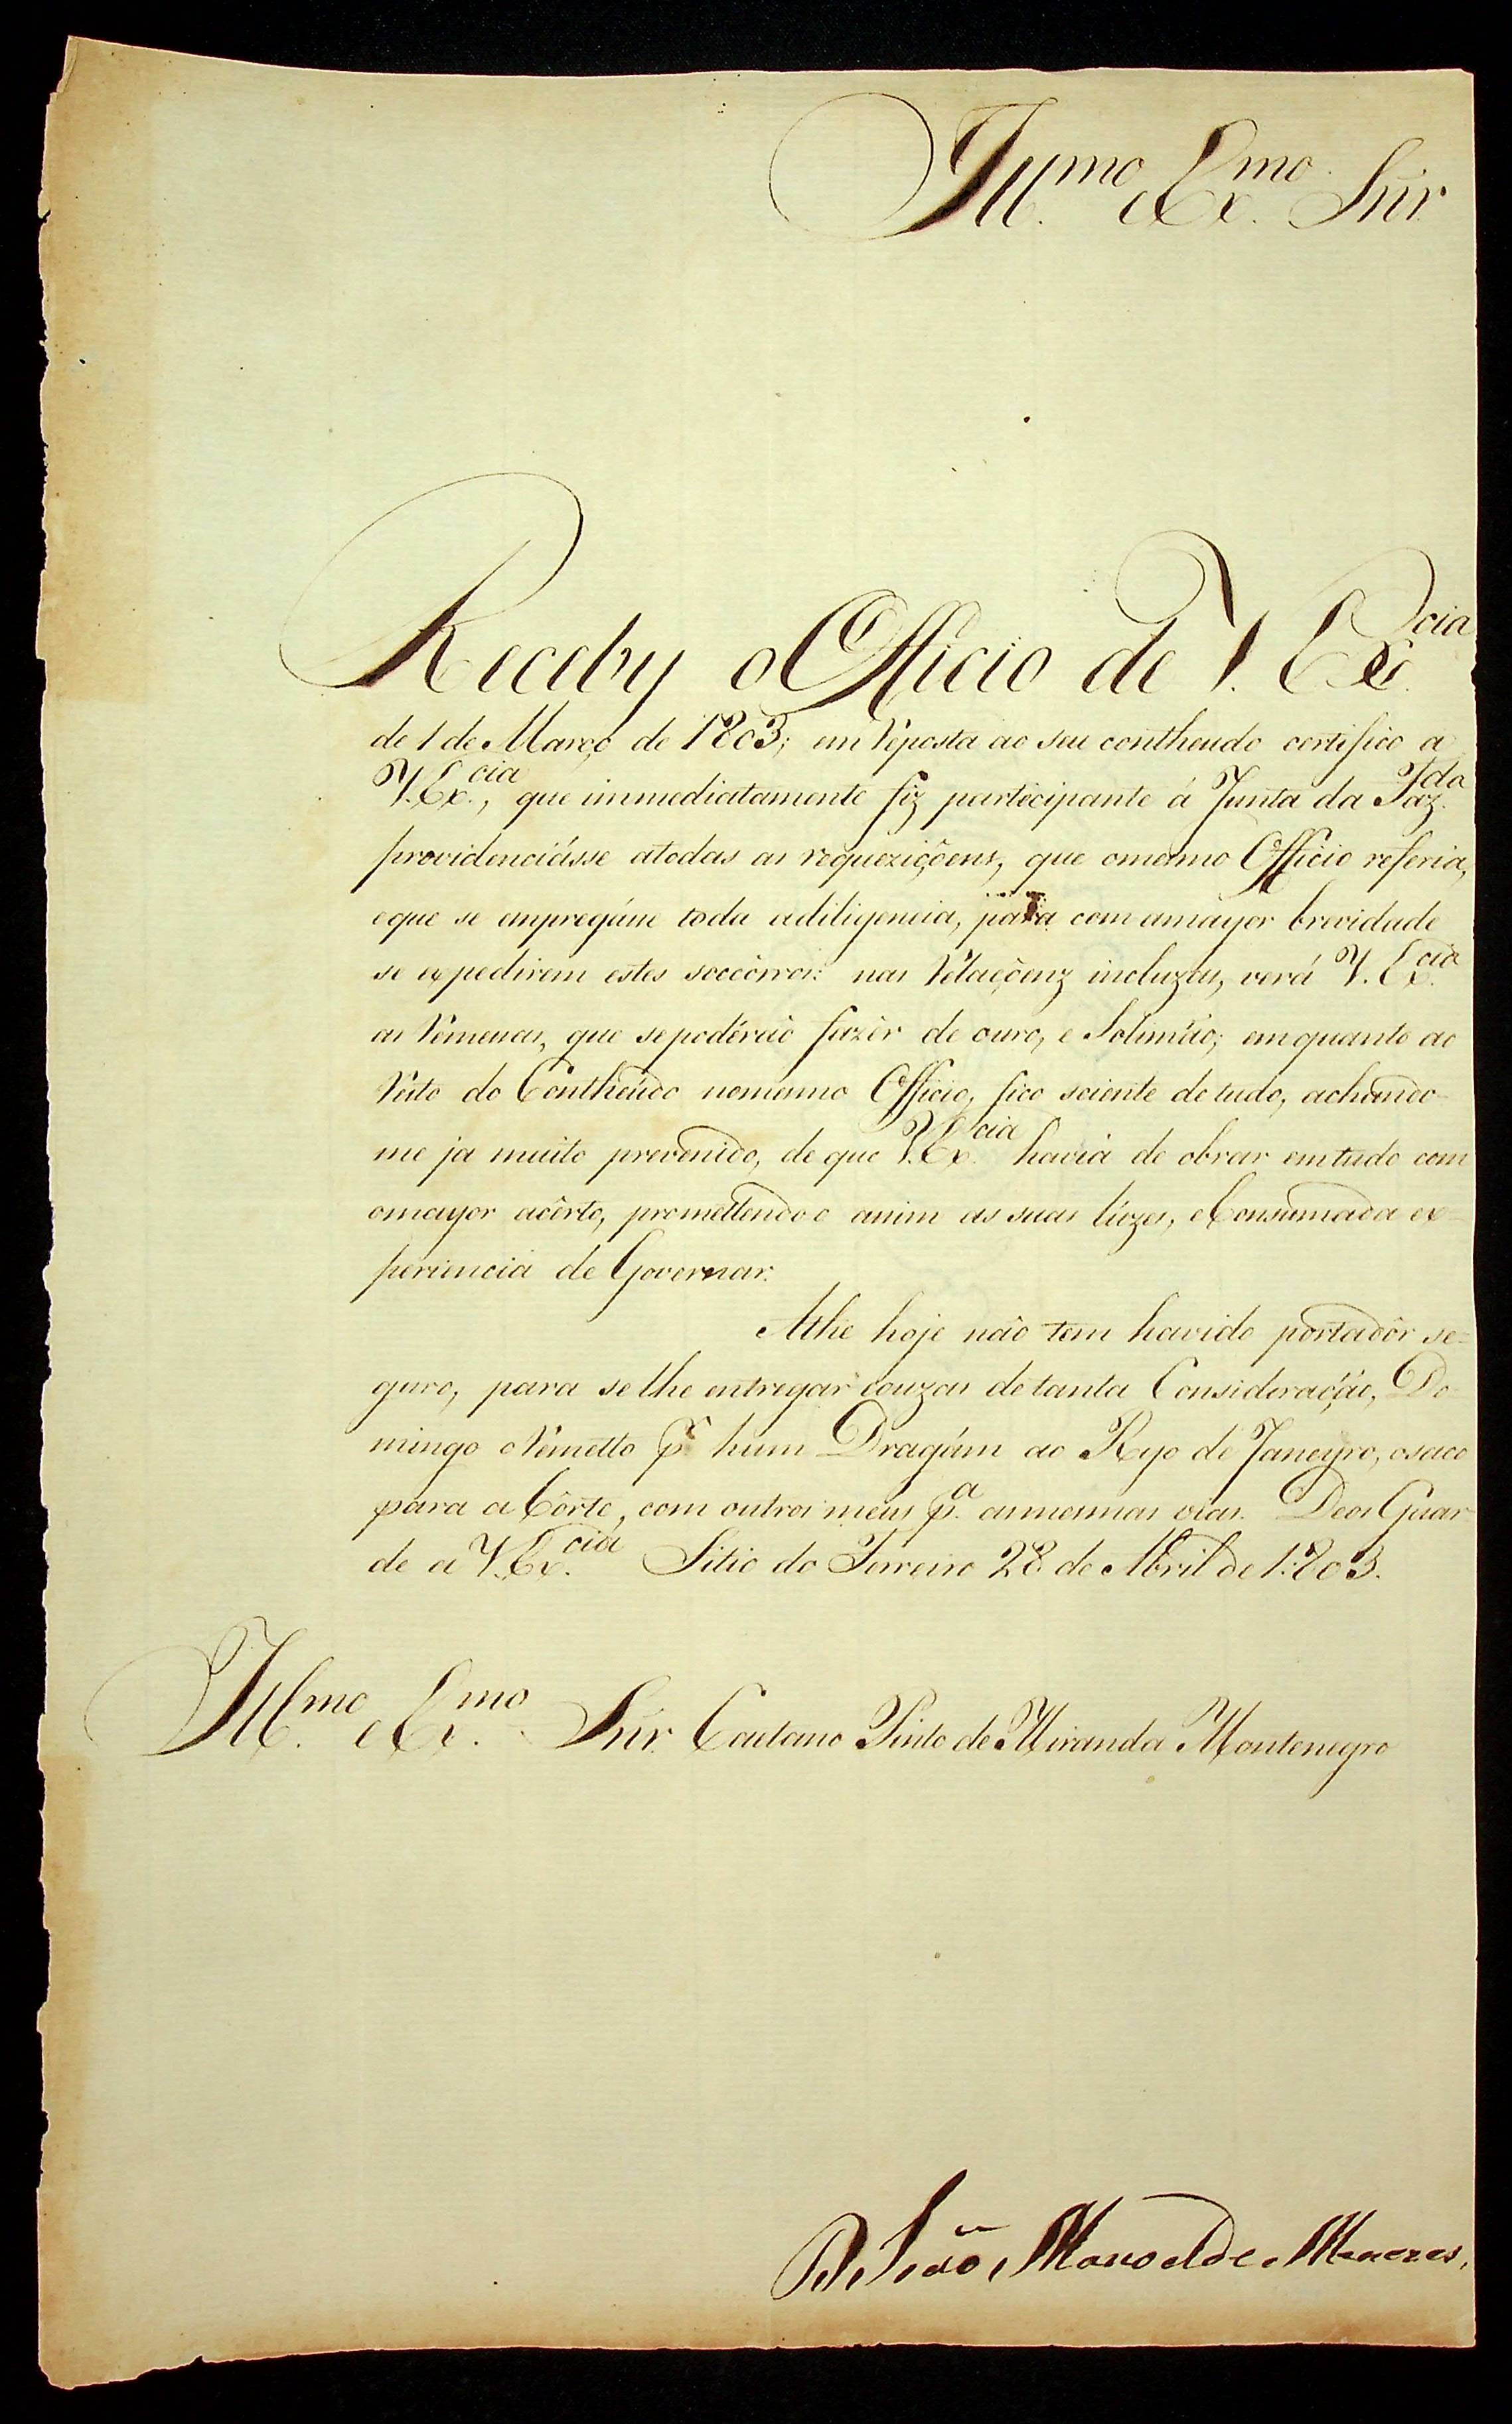 Ill.mo e Ex.mo Snr.
Receby o Officio de V. Ex.cia
de 1 de Março de 1803; em Reposta ao seu contheudo certifico a
V. Ex.cia, que immediatamente fiz participante á Junta da Faz.da
providenciásse atodas as requeziçôens, que omesmo Officio referia,
eque se empregásse toda adiligencia, para com amayor brevidade
se expedirem estes soccôrros: nas Rellaçôenz incluzas, verá V. Ex.cia
as Remessas, que sepodérão fazêr de ouro, e Solimão; emquanto ao
Resto do Contheúdo nomesmo Officio, fico sciente detudo, achando-
me ja muito prevenido, de que V. Ex.cia havia de obrar emtudo com
omayor acêrto, promettendo o assim as suas lúzes, eConsumada ex-
periencia de Governar.
Athe hoje não tem havido portadôr se-
guro, para selhe entregar couzas detanta Consideração, Do-
mingo oRemetto p.r hum Dragám ao Ryo de Janeyro, osaco
para a Côrte, com outros meus p.a asmesmas vias. Deos Guar-
de a V. Ex.cia Sitio do Ferreiro 28 de Abril de 1:803.
Ill.mo e Ex.mo Snr. Caetano Pinto de Miranda Montenegro
D. João Manoel de Menezes.